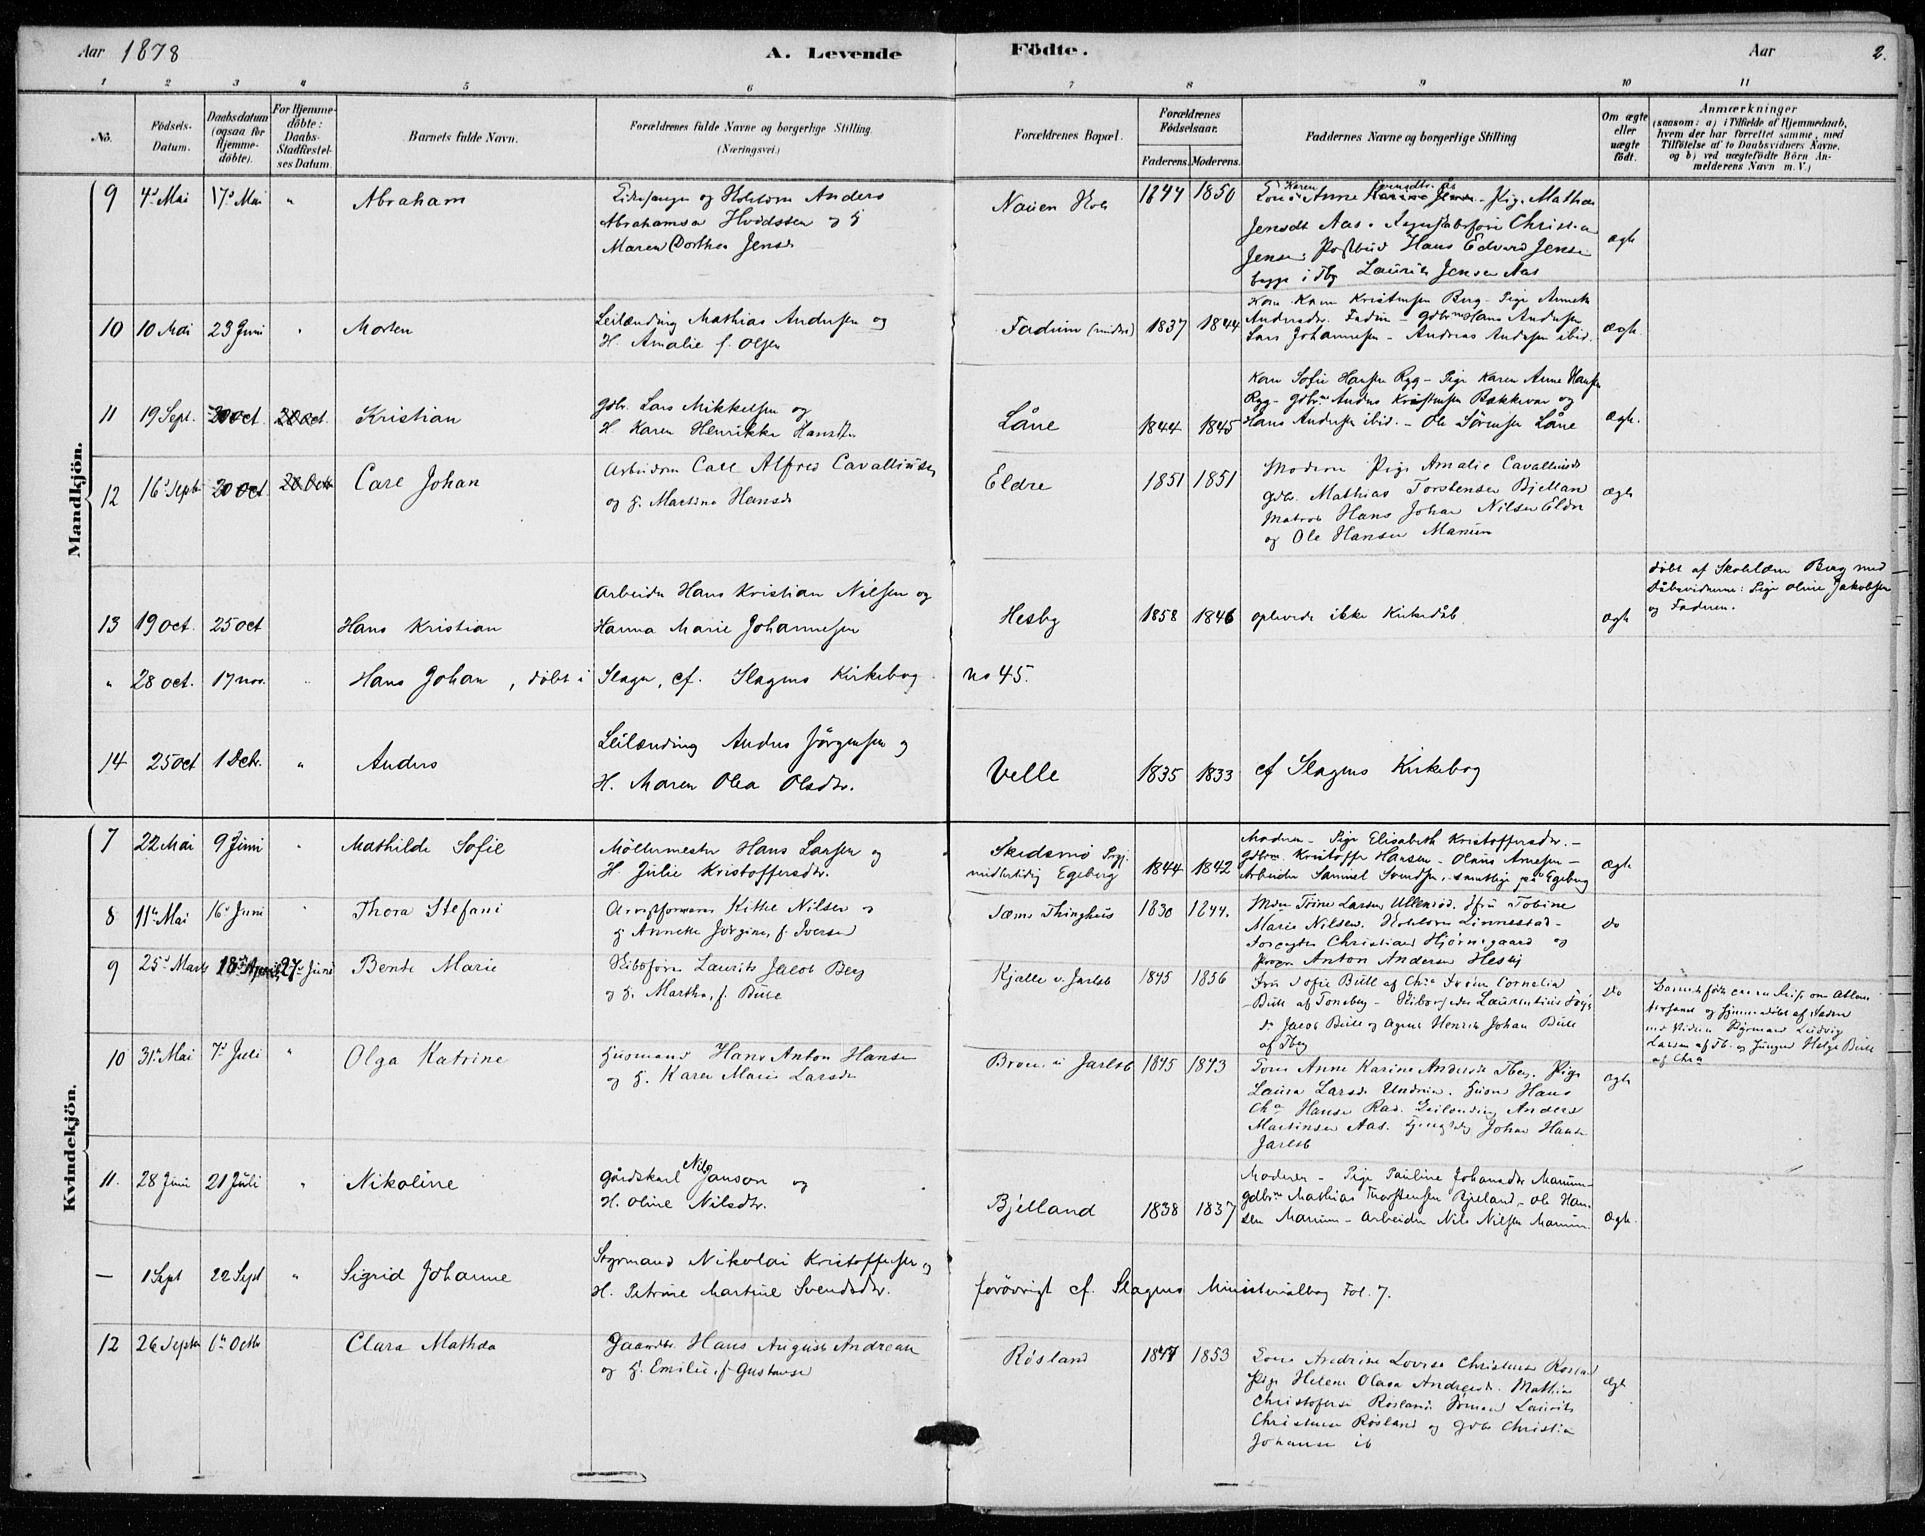 Aar 1878
A. Levende
Födte.
Aar
2.
1 2 3 4 5 6 7 8 9 10 11
No.
Födsels-Datum.
Daabsdatum (ogsaa for Hjemme-döbte).
For Hjemme-döbte: Daabs-Stadfæstel-ses Datum.
Barnets fulde Navn.
Forældrenes fulde Navne og borgerlige Stilling. (Næringsvei.)
Forældrenes Bopæl.
Forældrenes Födselsaar.
Faderens. Moderens.
Faddernes Navne og borgerlige Stilling
Om ægte eller uægte födt.
Anmærkninger
(saasom: a) i Tilfælde af Hjemmedaab, hvem der har forrettet samme, med Tilföielse af to Daabsvidners Navne. og b) ved uægtefödte Börn An-melderens Navn m. V.)
Mandkjön.
9 4de Mai 17de Mai " Abraham
og Anders
Abrahamsen og H.
Maren Dorthea Jensd.
1844 1850
Anne Pige Mathea
Jensdt Aas. Christian
Jensen, Postbud Hans Edvard Jensen
begge i Tbg Laurits Jensen Aas
ægte
10 10 Mai 23 Juni " Morten
Leilænding Mathias Andersen og
H. Amalie f. Olsen
Fadum 1837 1844
Kone Karen Kristensen Berg - Pige Annette
Andersdr. Fadum - Gdbr. Hans Andersen
Lars Johannesen - Andreas Andersen ibid.
ægte.
11 19 Sept. 20 Oct. 20 Oct. Kristian
Gdbr. Lars Mikkelsen og
H. Karen Henrikke Hansdr.
Låne 1844 1845
Kone Sofie Hansen Ryg - Pige Karen Anne Hansen
Ryg - Gdbr. Anders Kristensen Bækkevar og
Hans Andersen ibid. - Ole Sörensen Låne
ægte.
12 16de Septr 20 Oct. 20 Octr Carl Johan
Arbeidsm Carl Alfred Cavallinsen
og H. Martine Hansdr
Eldre 1851 1851
Moderen Pige Amalie Cavallinsdr
Gdbr. Mathias Torstensen Bjelland
Matros Hans Johan Nilsen Eldre
og Ole Hansen Manum
ægte
13 19 Oct. 25 Oct Hans Kristian
Arbeider Hans Kristian Nilsen og
Hanna Marie Johannesen
Hesby 1858 1846
oplevede ikke Kirkedåb
ægte
döbt af Skolelærer Berg med
Dåbsvidnerne: Pige Oline Jakobsen
og Faderen.
" 28 Oct. 17 Nov. " Hans Johan, döbt i Slagn, cf. Slagens Kirkebog no 45.
14 25 Oct 1 Decbr. " Anders
Leilænding Anders Jörgensen og
H. Maren Olea Olsdtr.
Velle 1835 1833
cf Slagens Kirkebog
Kvindekjön.
7 22 Mai 9 Juni " Mathilde Sofie
Möllermester Hans Larsen og
H. Julie Kristoffersdtr.
Skedsmö Prgj.
midlertidig Egeberg
1844 1842
Moderen - Pige Elisabeth Kristoffersdtr. -
Gdbr. Kristoffer Hansen - Olaus Arnesen -
Arbeider Samuel Svendsen, samtlige på Egeberg
ægte
8 11te Mai 16de Juni " Thora Stefani
Nilsen og
H. Annette Jörgine, f. Iversen
Sæms Thinghus 1830 1844.
Larsen Ullensöd. Tobine
Marie Nilsen. Linnestad -
Christian Hjörnegaard og
Anton Andersen Hesby
do
9 25de Marts 18de April 27de Juni Bente Marie
Skibsförer Laurits Jacob Berg
og H. Martha, f. Bull
Kjelle v. Jarlsb 1845 1856
Fru Sofie Bull af Chra Fröken Cornelia
Bull af Tonsberg - Laurentius
Jacob Bull og Agent Henrik Johan Bull
af Tbg
do
Styrmand Ludvig
Larsen af Tb. og Helge Bull
af Chra
10 31te Mai 7de Juli " Olga Katrine
Husmand Hans Anton Hansen
og H. Karen Marie Larsdr
Jarlsb 1845 1843
Kone Anne Karine Tbg. Pige
Laura Larsd. Undrum. Husm Hans
Chr. Hansen Rad. Leilænding Anders
Martinsen Aas. Johan Hansen
Jarlsb
ægte
11. 28 Juni 21 Juli " Nikoline
Gårdskarl Nils Janson og
H. Oline Nilsdtr.
Bjelland 1838 1837
Moderen - Pige Pauline Johansdtr Manum -
Gdbr. Mathias Thorstensen Bjelland - Ole Han-
sen Manum - Arbeider Nils Nilsen Manum
Ægte.
— 1 Sept 22 Sept " Sigrid Johanne
Styrmand Nikolai Kristoffersen og
H. Petrine Martine Svendsdtr.
forövrigt cf. Slagens Ministerialbog Fol. 7.
12 26 Septbr 6te Octbr Clara Mathea
Gaardbr. Hans August Andreasen
og H. Emilie, f. Gustavsen
Rösland 1847 1853
Kone Andrine Lovise Christensen Rösland
Pige Helene Olava Andreasdr. Mathias
Christofersen Rösland. Sömand Laurits
Christensen Rösland og Gdbr Christian
Johansen ib
ægte